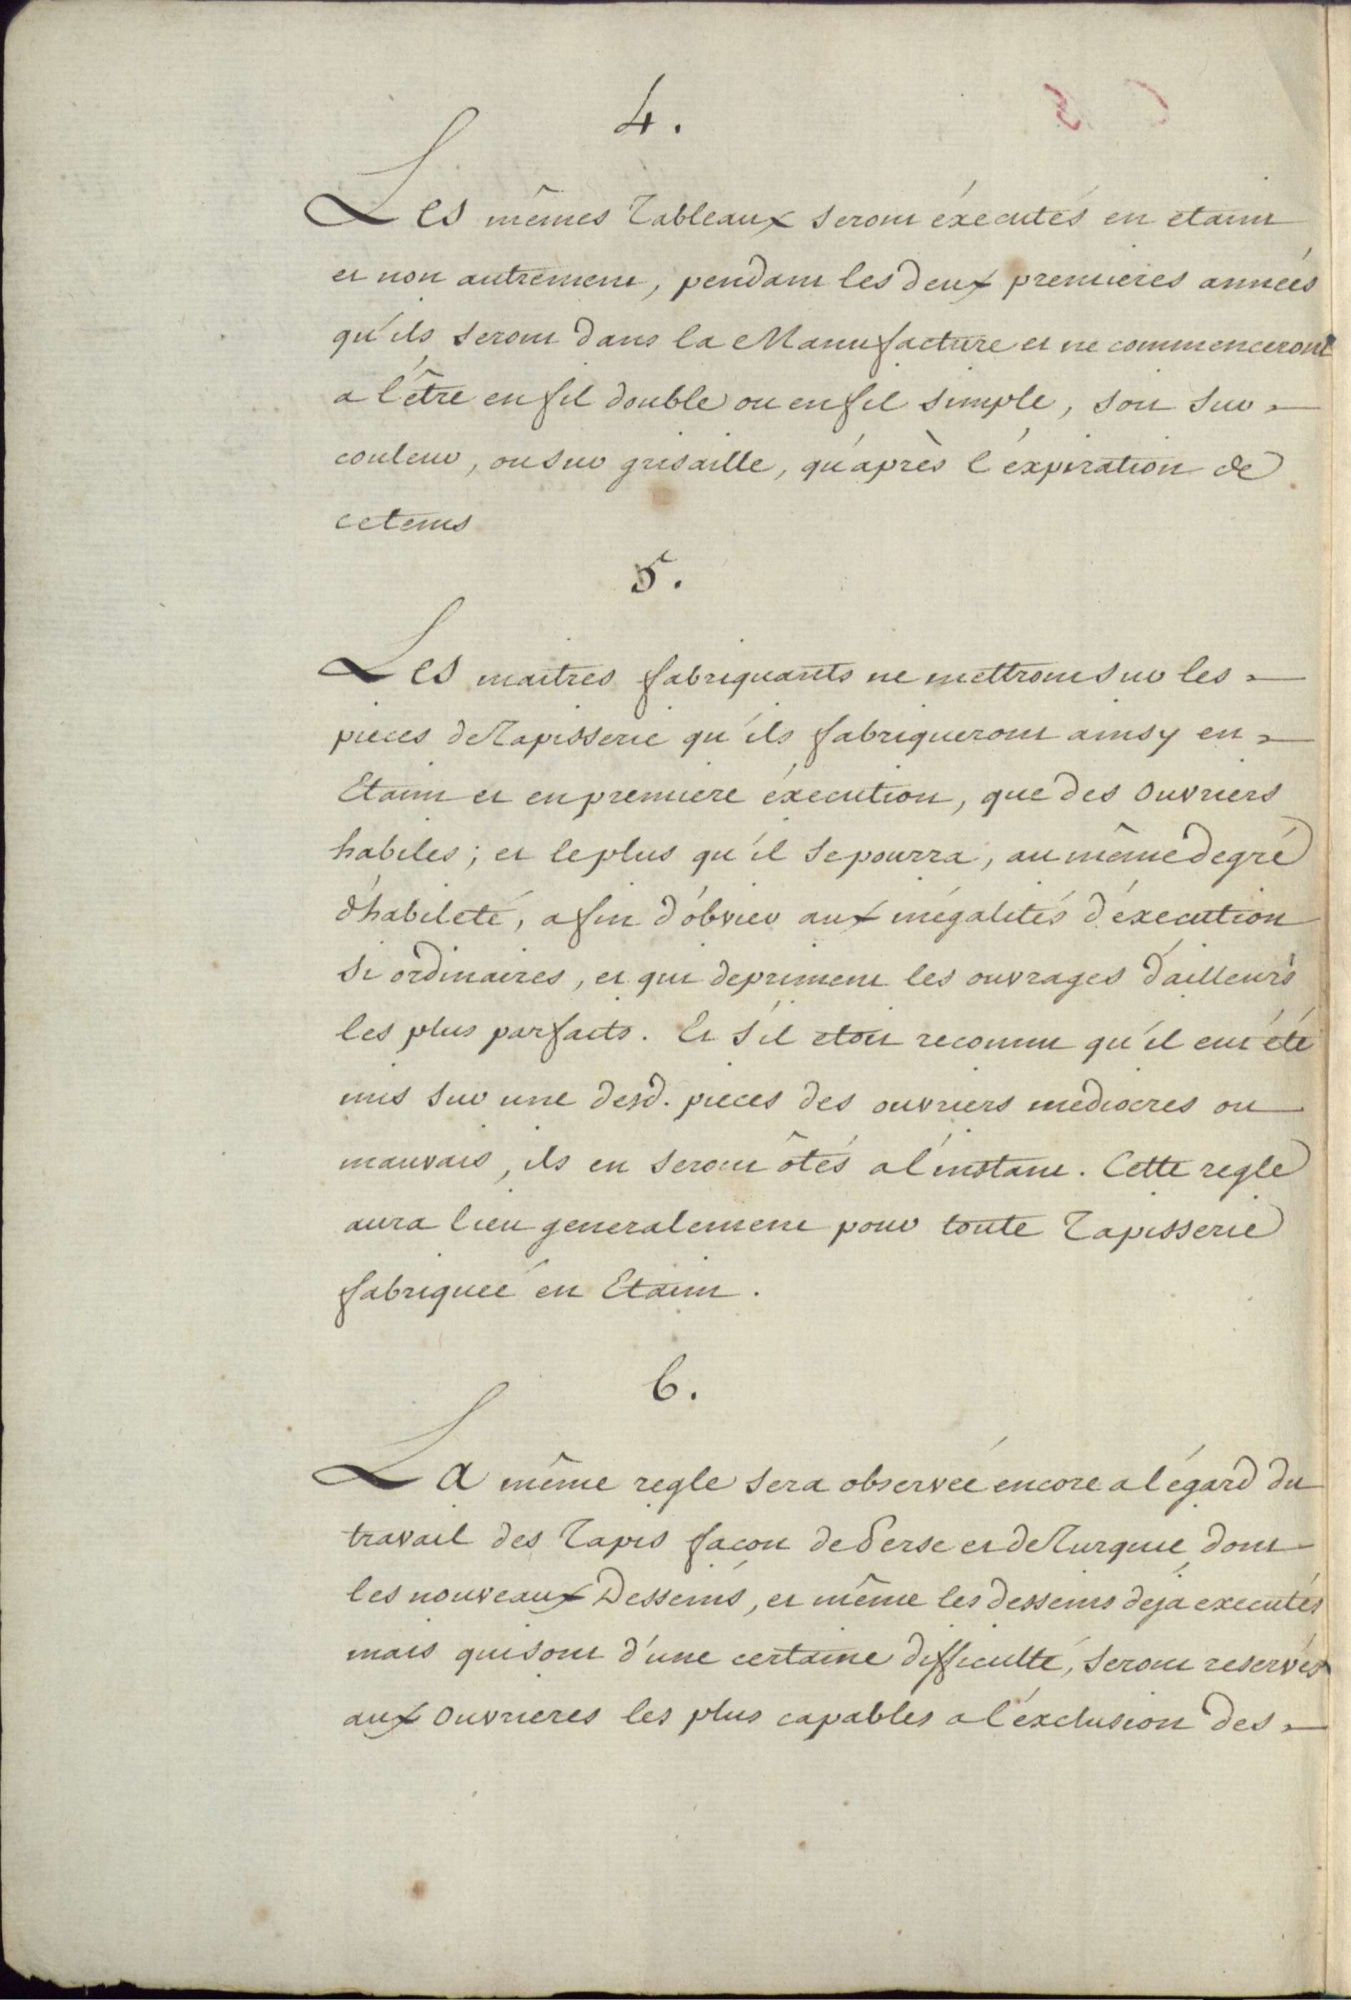 4.
Les mêmes Tableaux seront éxecutés en etaim
et non autrement, pendant les deux premieres années
qu'ils seront dans la Manufacture et ne commenceront
a l'être en fil double ou en fil simple, soit sur
couleur, ou sur grisaille, qu'après l'éxpiration de
ce tems
5.
Les maitres fabriquants ne mettront sur les
pieces de Tapisserie qu'ils fabriqueront ainsy en
Etaim et en premiere éxecution, que des ouvriers
habiles; et le plus qu'il se pourra, au même degré
d'habileté, afin d'obvier aux inégalités d'éxecution
si ordinaires, et qui depriment les ouvrages d'ailleurs
les plus parfaits. Et s'il etoit reconnu qu'il eut été
mis sur une desd. pieces des ouvriers mediocres ou
mauvais, ils en seront ôtés a l'instant. Cette regle
aura lieu generalement pour toute Tapisserie
fabriquée en Etaim.
6.
La même regle sera observée encore a l'égard du
travail des Tapis façon de Perse et de Turquie dont
les nouveaux Desseins, et même les desseins déja executés
mais qui sont d'une certaine difficulté, seront reservés
aux ouvrieres les plus capables a l'éxclusion des